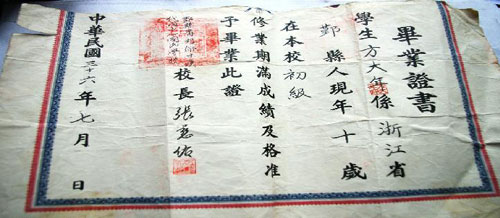 畢業證書
學生方大年係浙江省
鄞縣人現年十歲
在本校初級
修業期滿成績及格准
予畢業此證
校長張
中華民國三十六年七月 日